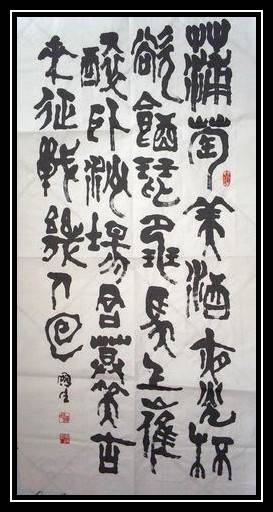 蒲萄美酒夜光杯
欲飲琵琶馬上催
醉臥沙場君莫笑古
來征戰幾人回
國生